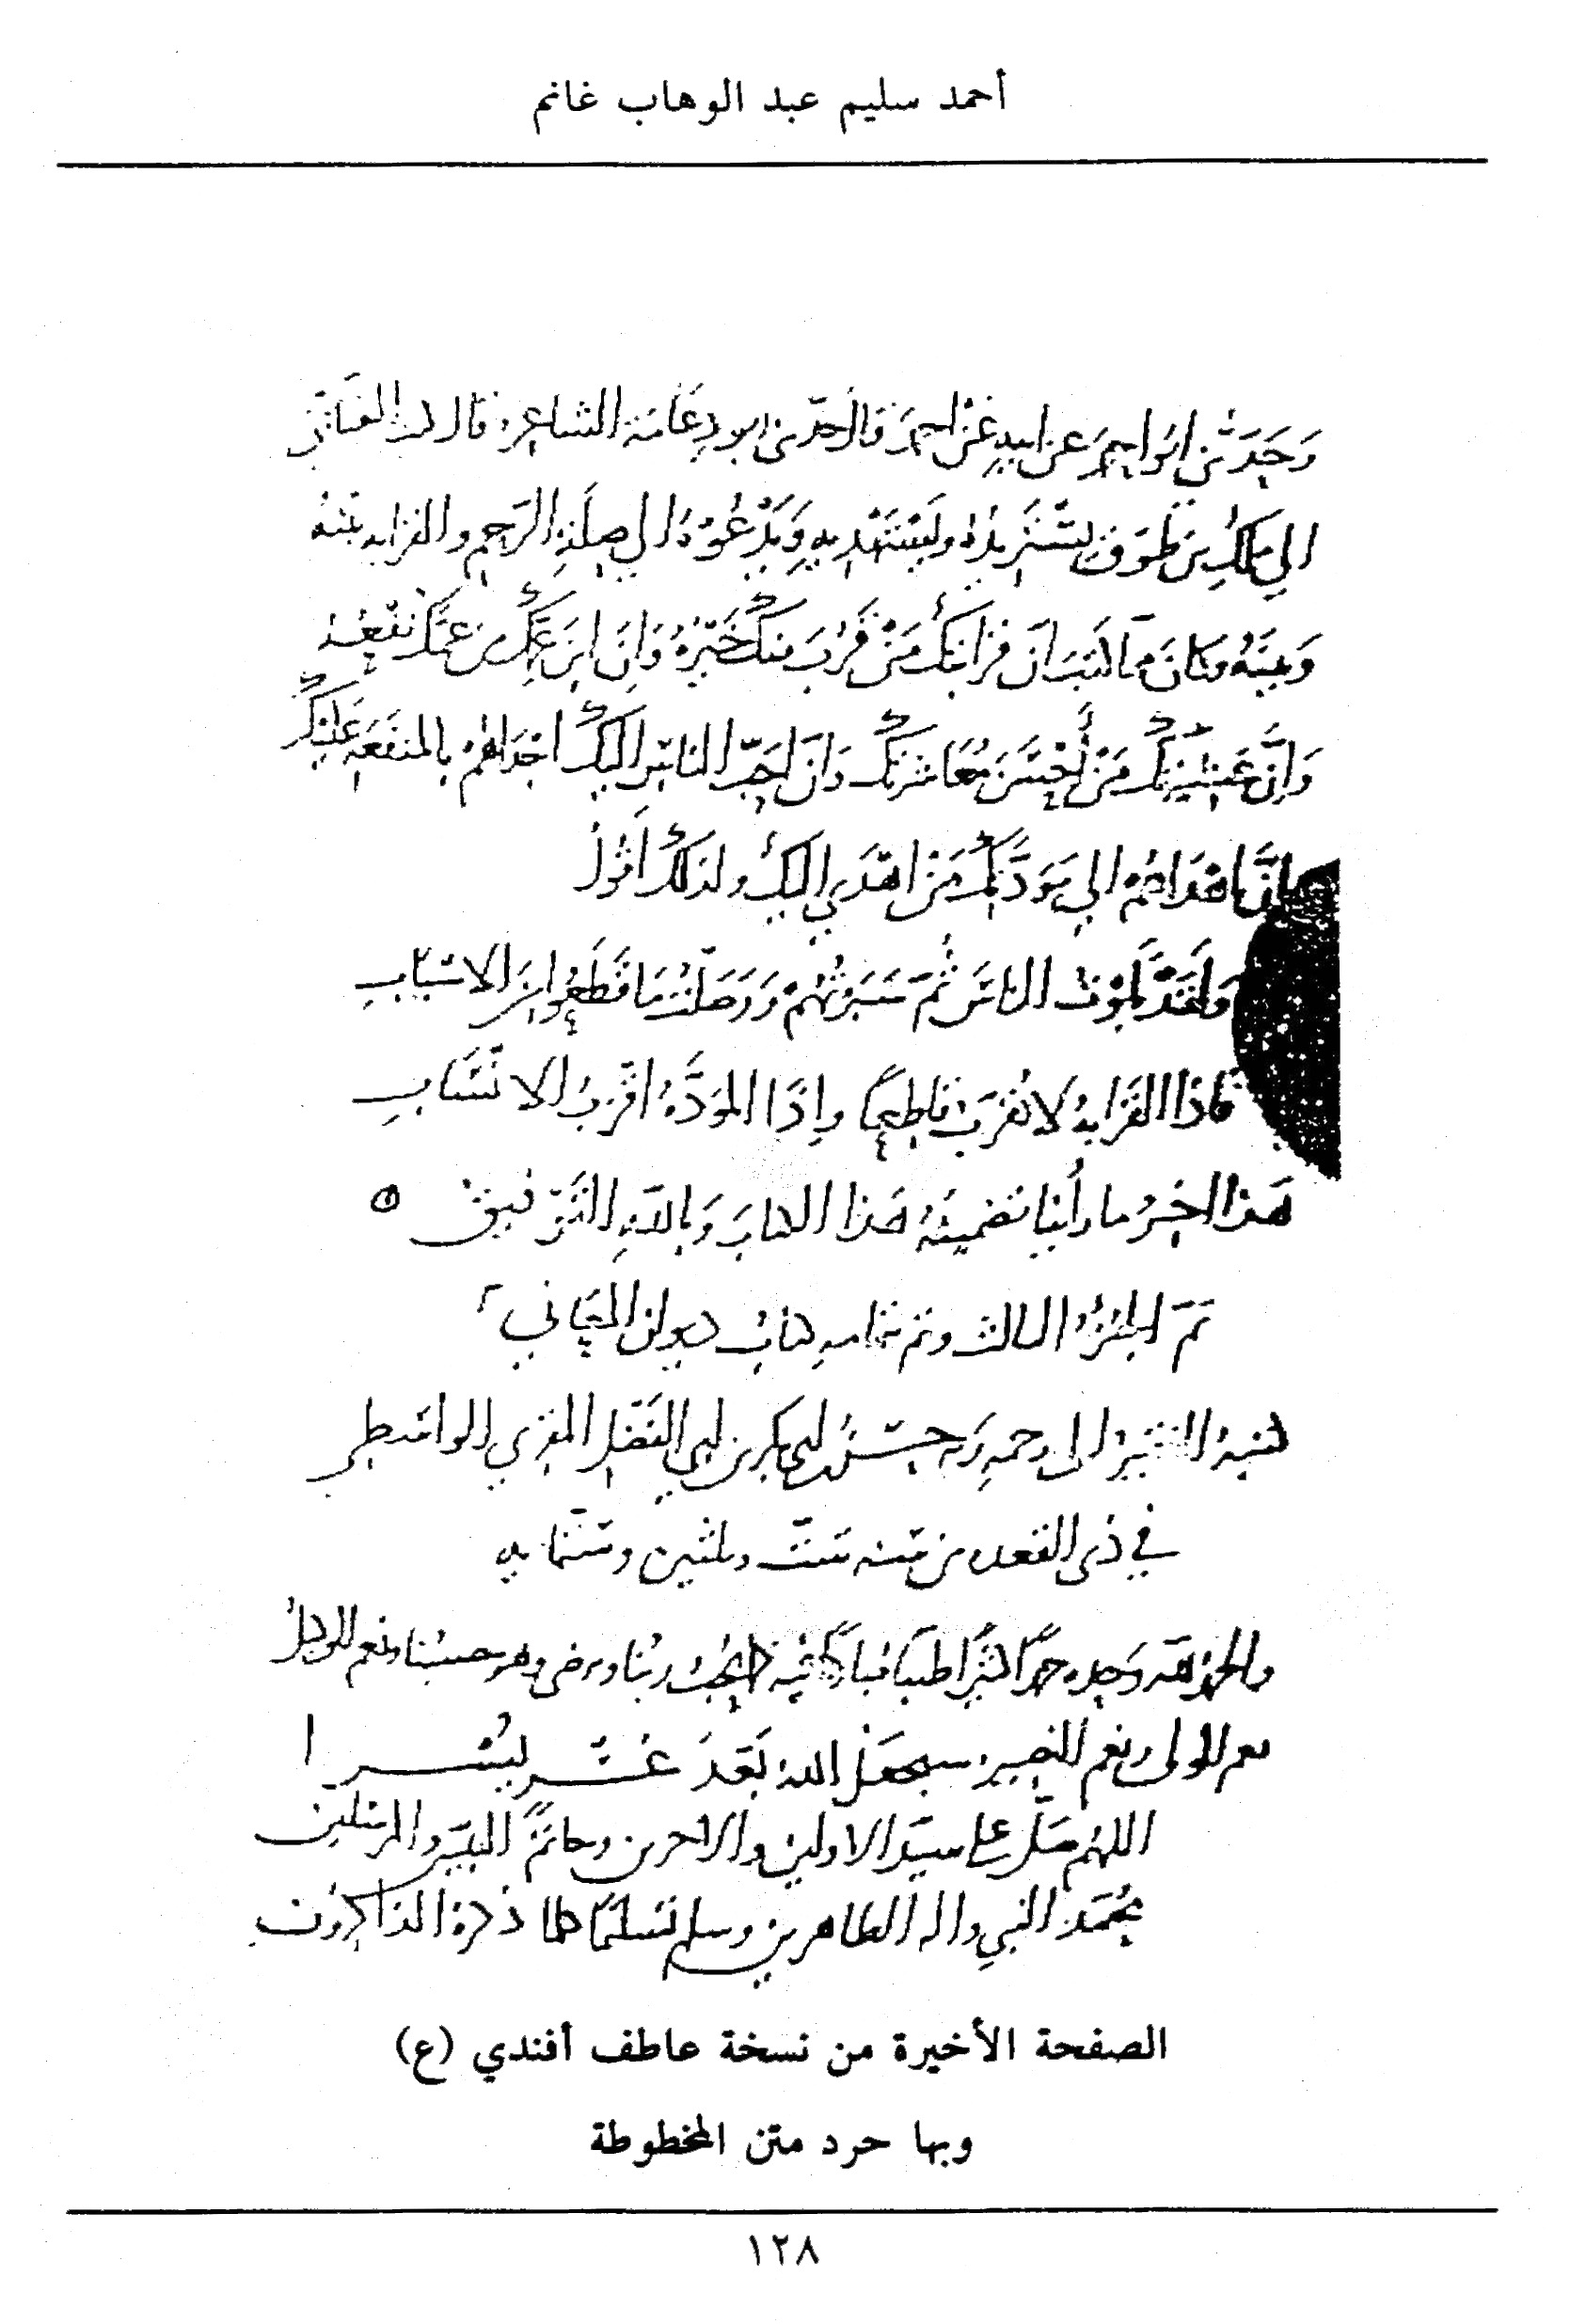 أحمد سليم عبد الوهاب غانم
وَحَدَّثني ابراهيم عن ابيه عن احمدَ قال حدّثني ابو دِعَامَة الشاعر قال كتب العتّابي
الي مالك بن طَوق يستَزيدُهُ ويَستَهْديه وَيَدْعُوهُ الى صِلَةِ الرَّحِم والقرابه بينه
وَبينَهُ فكانَ مما كتبَ انّ قرابتكَ مَنْ قَرُبَ منكَ خَيْرُهُ وَاِنّ ابنَ عَمِّكَ من عمّكَ نَفْعُهُ
وَاِنَّ عَشيرَتكَ مَنْ أَحْسَنَ مُعَاشرَتكَ وَانّ اَحَبَّ الناسِ اليكَ اَجْدَاهُم بالمنفَعَه عَليْكَ
وانَّ اهْدَاهُمْ الي مَوَدّتكَ مَنْ اهْدَي اليكَ ولذلكَ اَقُولُ
وَلَقَدْ بَلَوْتُ الناسَ ثُمّ سَبَرْتُهُمْ وَوَصَلْتُ مَا قَطَعُوا مِنَ الاسْبَابِ
فَاِذَا القَرَابهُ لا تُقَرِّبُ قاطِعًا وإِذَا المَوَدَّهُ اَقْرَبُ الانْسَابِ
هَذا اخِرُ ما رأَينا تضمينَهُ هَذا الكتابَ وَبِاللهِ التَّوْفيق ه
تمّ الجزءُ الثالث وتم بتمامه كتابُ ديوان المعَاني
كتبهُ الفقيرُ الى رحمهِ رَبه حسَنُ بن ابي بكر بن ابي الفَضْلِ المقري الواسطي
في ذي القعده من سنه ستّ وثلثين وستّمايه
والحمدُ لله وَحده حمدًا كثيرًا طيبًا مُبارَكًا فيه كما يُحبّ ربُّنا ويرضى وهو حسبُنا ونعم الوكيلُ
نعم المولى ونعم النصير سيجعَل اللهُ بَعْدَ عُسْرٍ يُسْرا
اللهُم صَلّ على سيّد الاولين والاخرين وخاتم النبيين والمرسَلين
مُحَمّد النبي واله الطاهرين وسلم تَسْليمًا كلما ذكرهُ الذاكِرُون
الصفحة الأخيرة من نسخة عاطف أفندي (ع)
وبها حرد متن المخطوطة
١٢٨